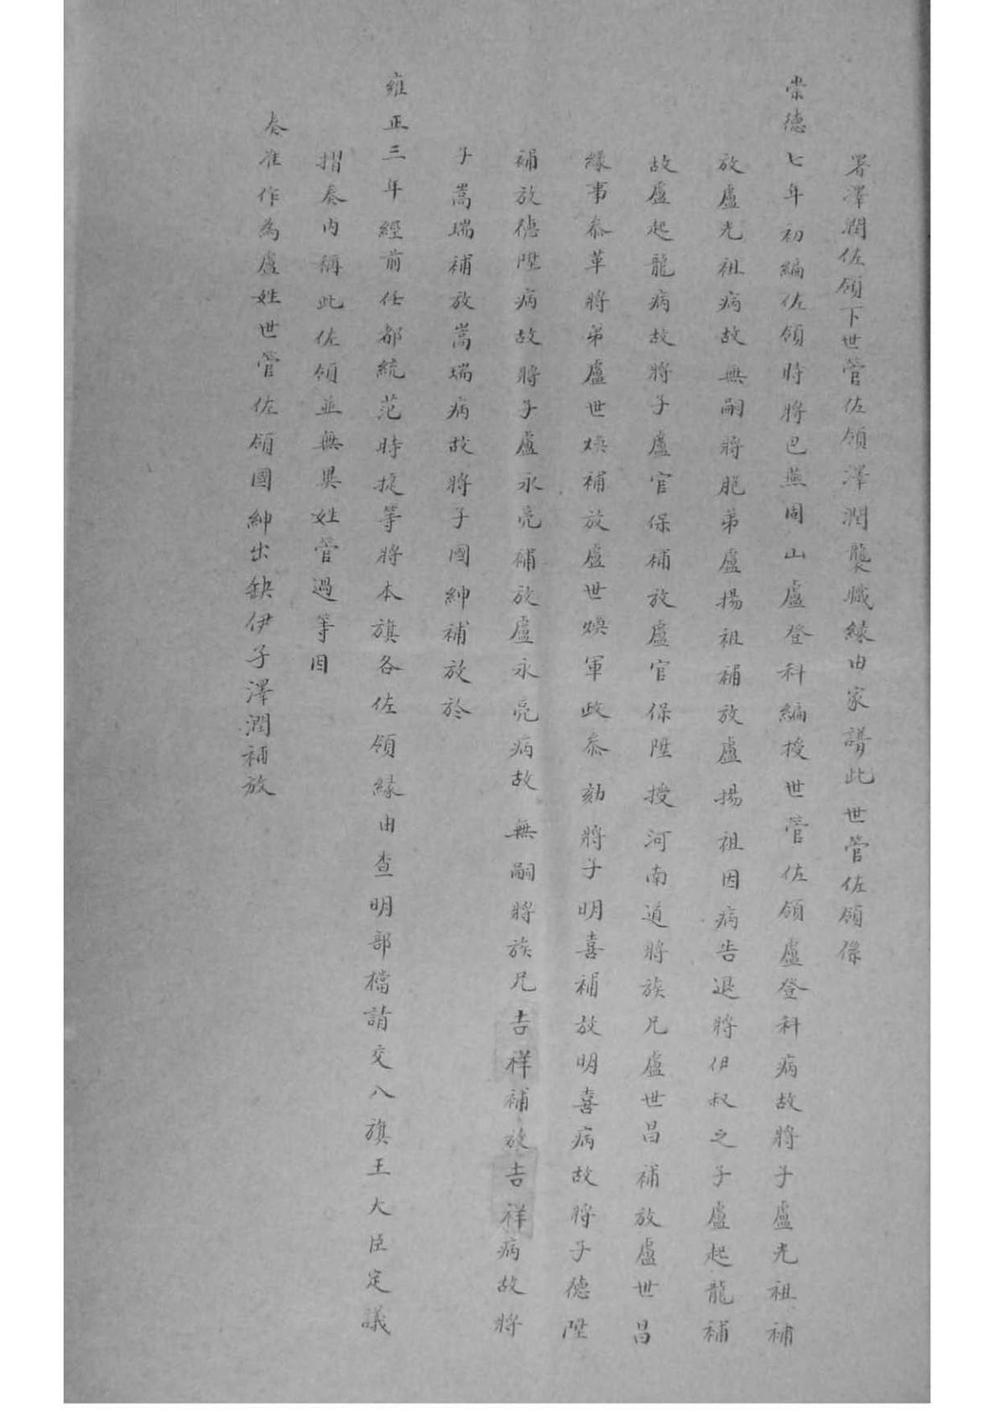 署澤潤佐領下世管佐領澤潤襲職緣由家譜此世管佐領係
崇德七年初編佐領時將巴燕固山盧登科編授世管佐領盧登科病故將子盧光祖補
放盧光祖病故無嗣將胞弟盧揚祖補放盧揚祖因病告退將伊叔之子盧起龍補
故盧起龍病故將子盧官保補放盧官保陞授河南道將族兄盧世昌補放盧世昌
緣事叅革將弟盧世煥補放盧世煥軍政叅劾將子明喜補放明喜病故將子德陞
補放德陞病故將子盧永亮補放盧永亮病故無嗣將族兄吉祥補放吉祥病故將
子嵩瑞補放嵩瑞病故將子國紳補放於
雍正三年經前任都統范時捷等將本旗各佐領緣由查明部檔請交八旗王大臣定議
摺奏內稱此佐領並無異姓管過等因
奏准作為盧姓世管佐領國紳出缺伊子澤潤補放